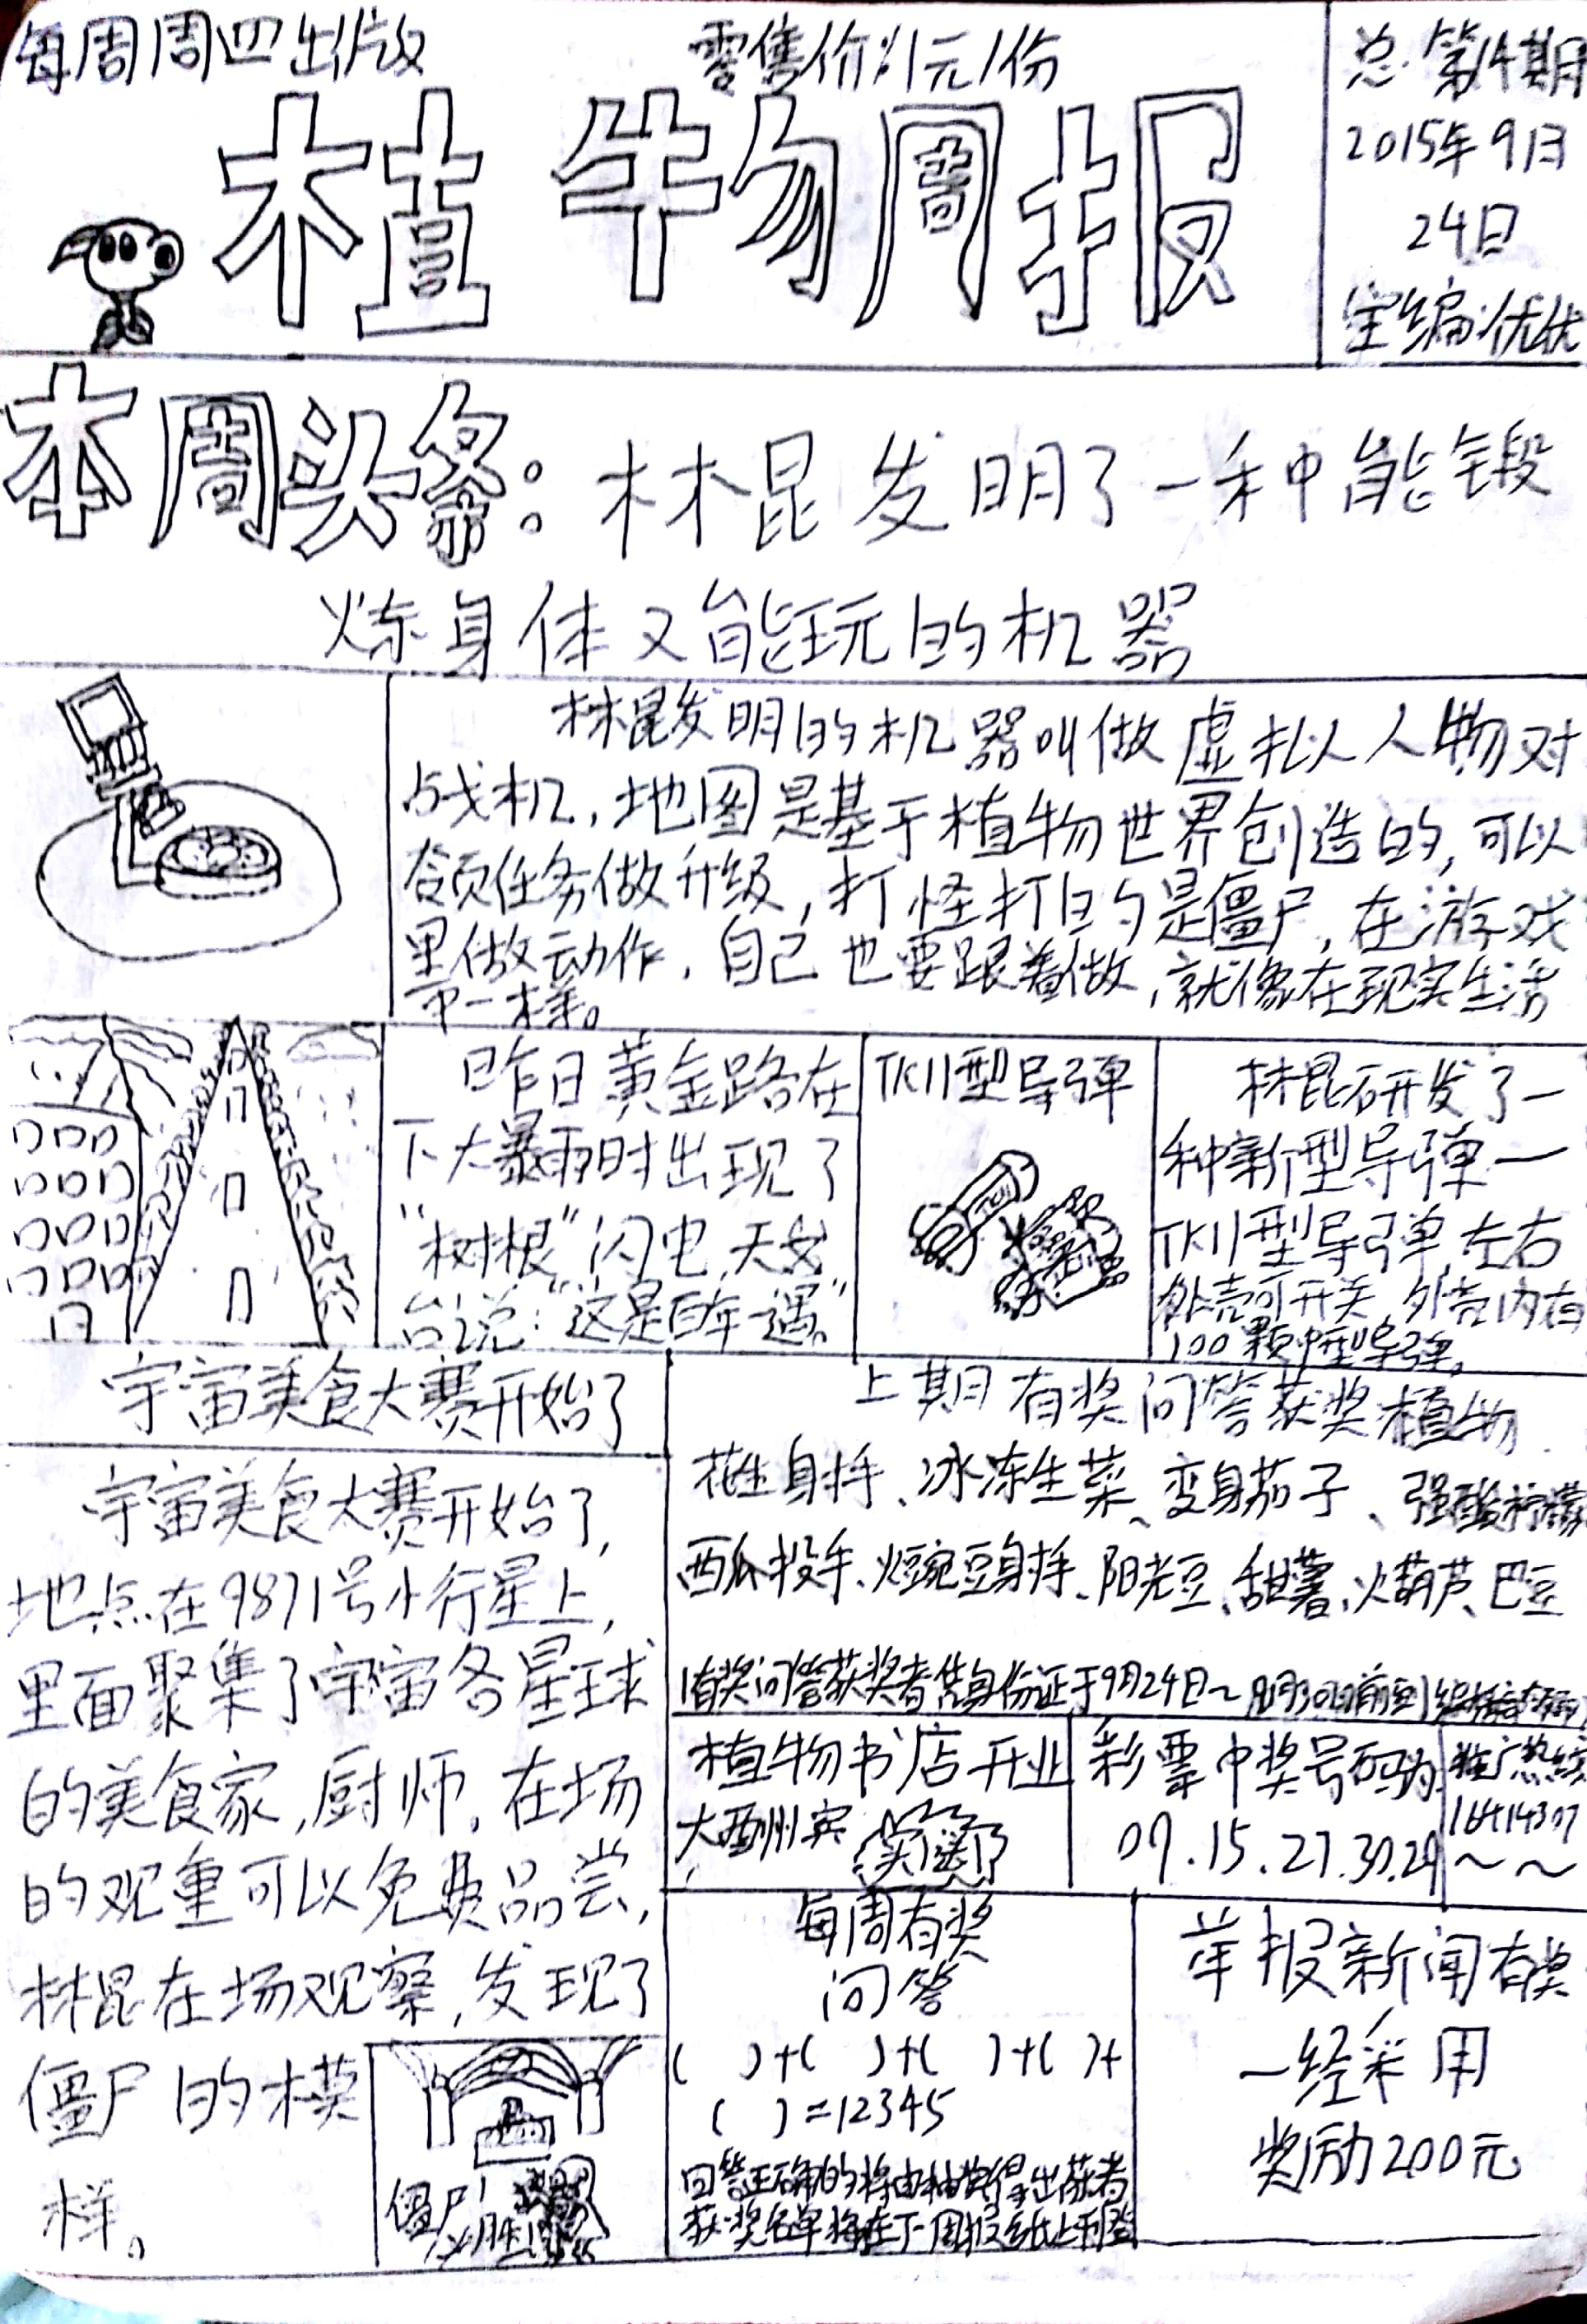 每周周四出版
零售价:1元/份
植物周报
总第14期
2015年9月
24日
主编:优优
本周头条:林昆发明了一种能锻
炼身体又能玩的机器
林昆发明的机器叫做虚拟人物对
战机,地图是基于植物世界创造的,可以
领任务做升级,打怪打的是僵尸,在游戏
里做动作,自己也要跟着做,就像在现实生活
中一样。
昨日黄金路在
下大暴雨时出现了
“树根”闪电,天文
台说:“这是百年一遇。”
TK11型导弹
林昆研发了一
种新型导弹一
TK11型导弹,左右
外壳可开关,外壳内有
100颗中型导弹。
宇宙美食大赛开始了
宇宙美食大赛开始了,
地点在9871号小行星上,
里面聚集了宇宙各星球
的美食家,厨师,在场
的观重可以免费品尝,
林昆在场观察,发现了
僵尸的模
样。
僵尸必胜!
上期有奖问答获奖植物
花生射手、冰冻生菜、变身茄子、强酸柠檬
西瓜投手、火豌豆射手、阳光豆、甜薯、火葫芦、巴豆
有奖问答获奖者凭身份证于9月24日~
植物书店开业
大酬宾
彩票中奖号码为
07.15.27.30.29
推广热线
每周有奖
问答
( )+( )+( )+( )+
( )=12345
回答正确的将由抽奖得出获奖者
获奖名单将在下一周报纸上刊登
举报新闻有奖
一经采用
奖励200元